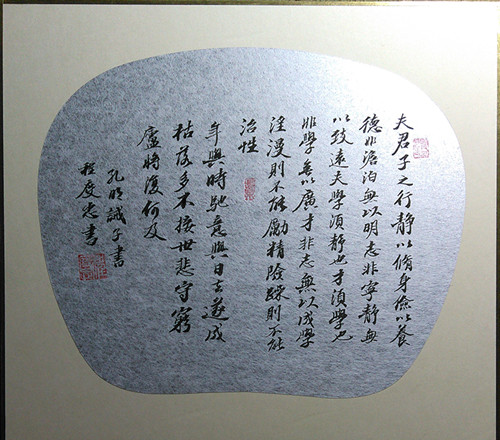 夫君子之行静以脩身儉以養
德非澹泊無以明志非寧静無
以致遠夫學須静也才須學也
非學無以廣才非志無以成學
淫漫則不能勵精險躁則不能
治性
年與時馳意與日去遂成
枯落多不接世悲守窮
廬將復何及
孔明誡子書
程度忠書